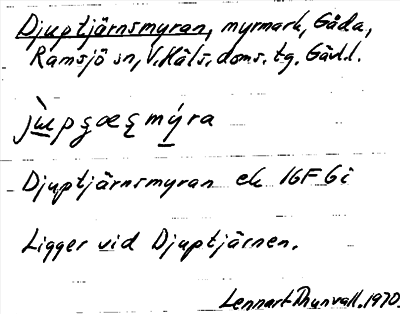 Djuptjärnsmyran, myrmark, Gåda,
Ramsjö sn, V. Häls. doms. tg. Gävl.l.
Djuptjärnsmyran ek 16F 6i
Ligger vid Djuptjärnen.
Lennart Thunvall. 1970.